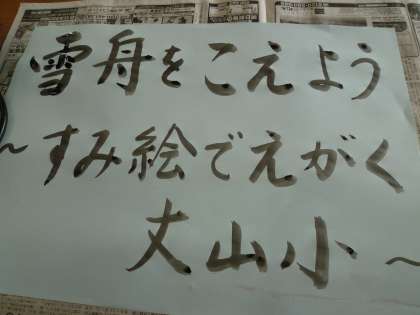 雪舟をこえよう
～すみ絵でえがく
丈山小～